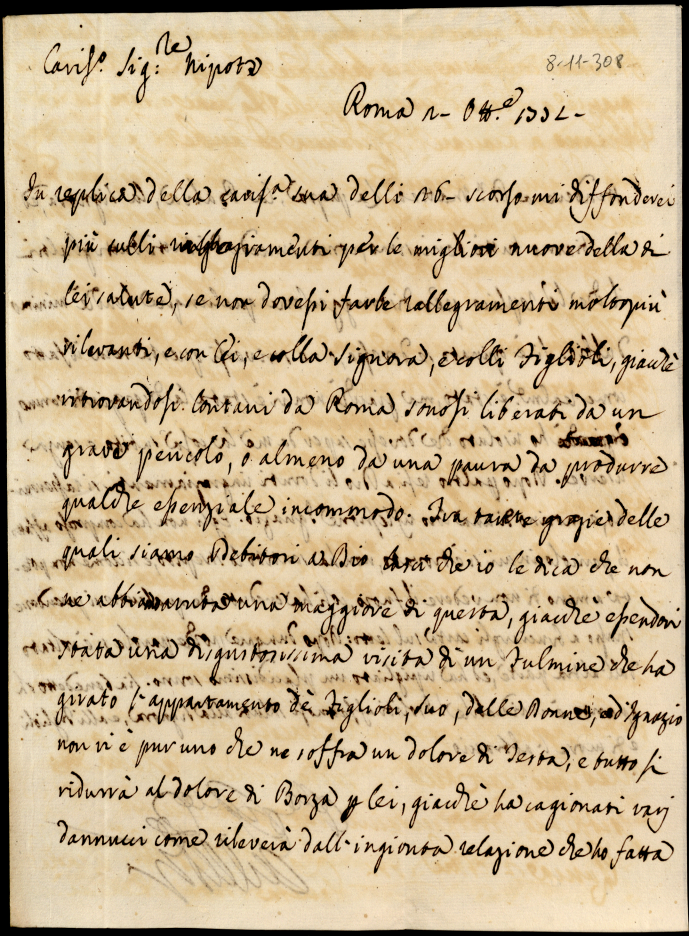 Cariss.o Sig:re Nipote
8-11-308
Roma 2- Ott.e 1332-
In replica della cariss.a sua delli 26- scorso mi diffonderei
più sulli rallegramenti per le migliori nuove della di
lei salute, se non dovessi farle rallegramenti molto più
rilevanti, e con lei, e colla Signora, e colli Figlioli, giachè
ritrovandosi lontani da Roma sonosi liberati da un
grave pericolo, o almeno da una paura da produrre
qualche essenziale incommodo. Fra tante grazie delle
quali siamo Debitori a Dio che io le dica che non
ne abbiamo avuta una maggiore di questa, giachè essendovi
stata una disgustosissima visita di un Fulmine che ha
girato l'appartamento de Figlioli, suo, delle Donne, e d'Ignazio
non vi è pur uno che ne soffra un dolore di Testa, e tutto si
ridurrà al dolore di Borza p lei, giachè ha cagionati varj
dannucci come rileverà dall'ingionta relazione che ho fatta